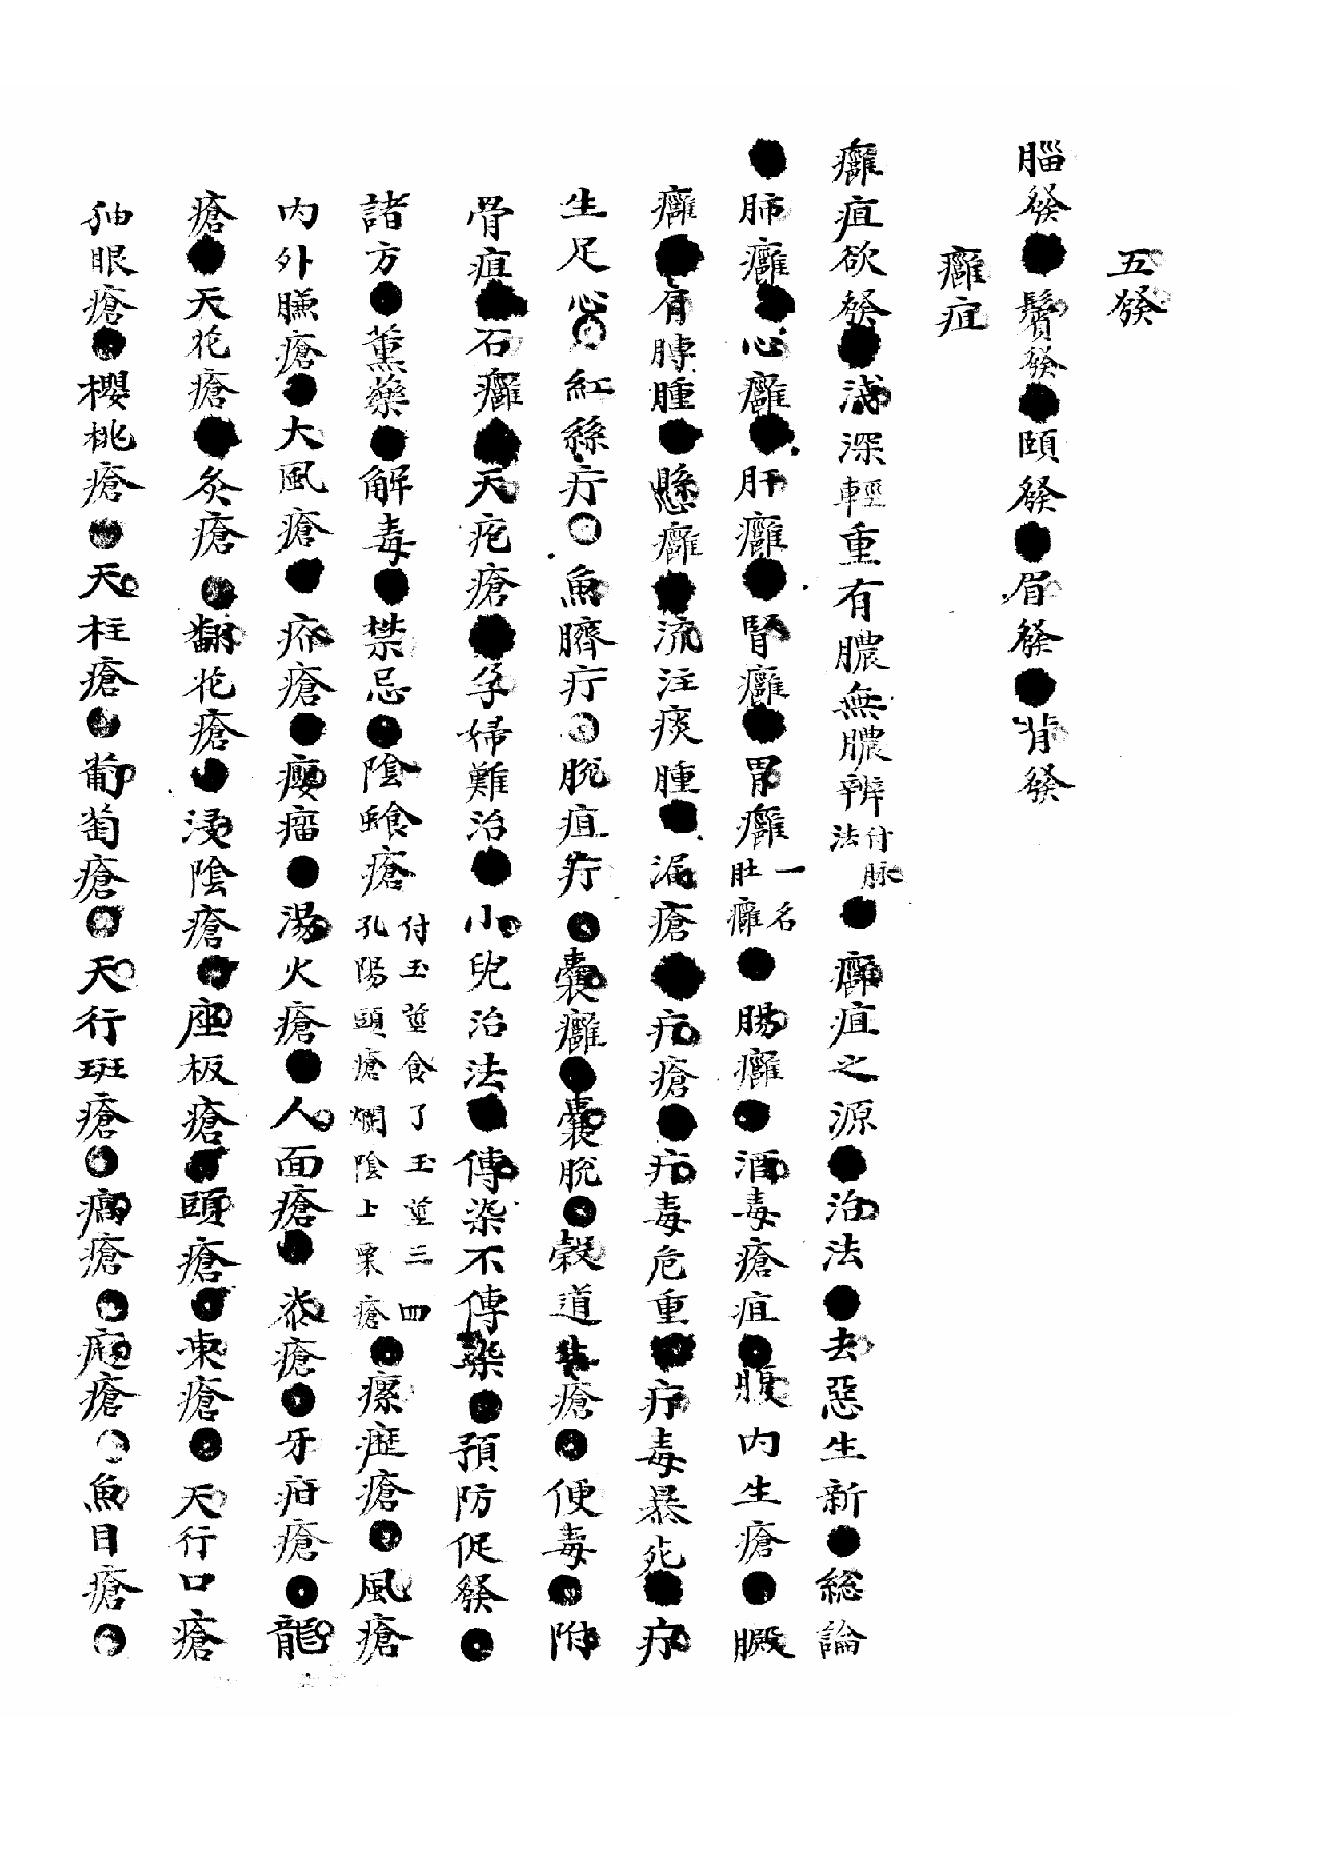 五發
腦發●鬢發●頤發●眉發●背發
癰疽
癰疽欲發●淺深輕重有膿無膿辨付脉法●癰疽之源●治法●去惡生新●総論
●肺癰●心癰●肝癰●腎癰●胃癰一名肚癰●腸癰●酒毒瘡疽●腹內生瘡●臀
癰●有膊腫●懸癰●流注痰腫●漏瘡●疔瘡●疔毒危重●疔毒暴死●疔
生足心○紅絲疔○魚臍疔○脫疽疔●囊癰●囊脫●穀道生瘡●便毒●附
骨疽●石癰●天疱瘡●孕婦難治●小兒治法●傳染不傳染●預防促發●
諸方●薰藥●解毒●禁忌●陰蝕瘡付玉莖食了玉莖三四孔陽頭瘡爛陰上粟瘡●瘰癧瘡●風瘡
內外臁瘡●大風瘡●疥瘡●癭瘤●湯火瘡●人面瘡●柒瘡●牙疳瘡●龍
瘡●天花瘡●灸瘡●翻花瘡●浸陰瘡●座板瘡●頭瘡●凍瘡●天行口瘡
㹨眼瘡●櫻桃瘡●天柱瘡●葡萄瘡●天行斑瘡●瘑瘡●瘢瘡○魚目瘡○